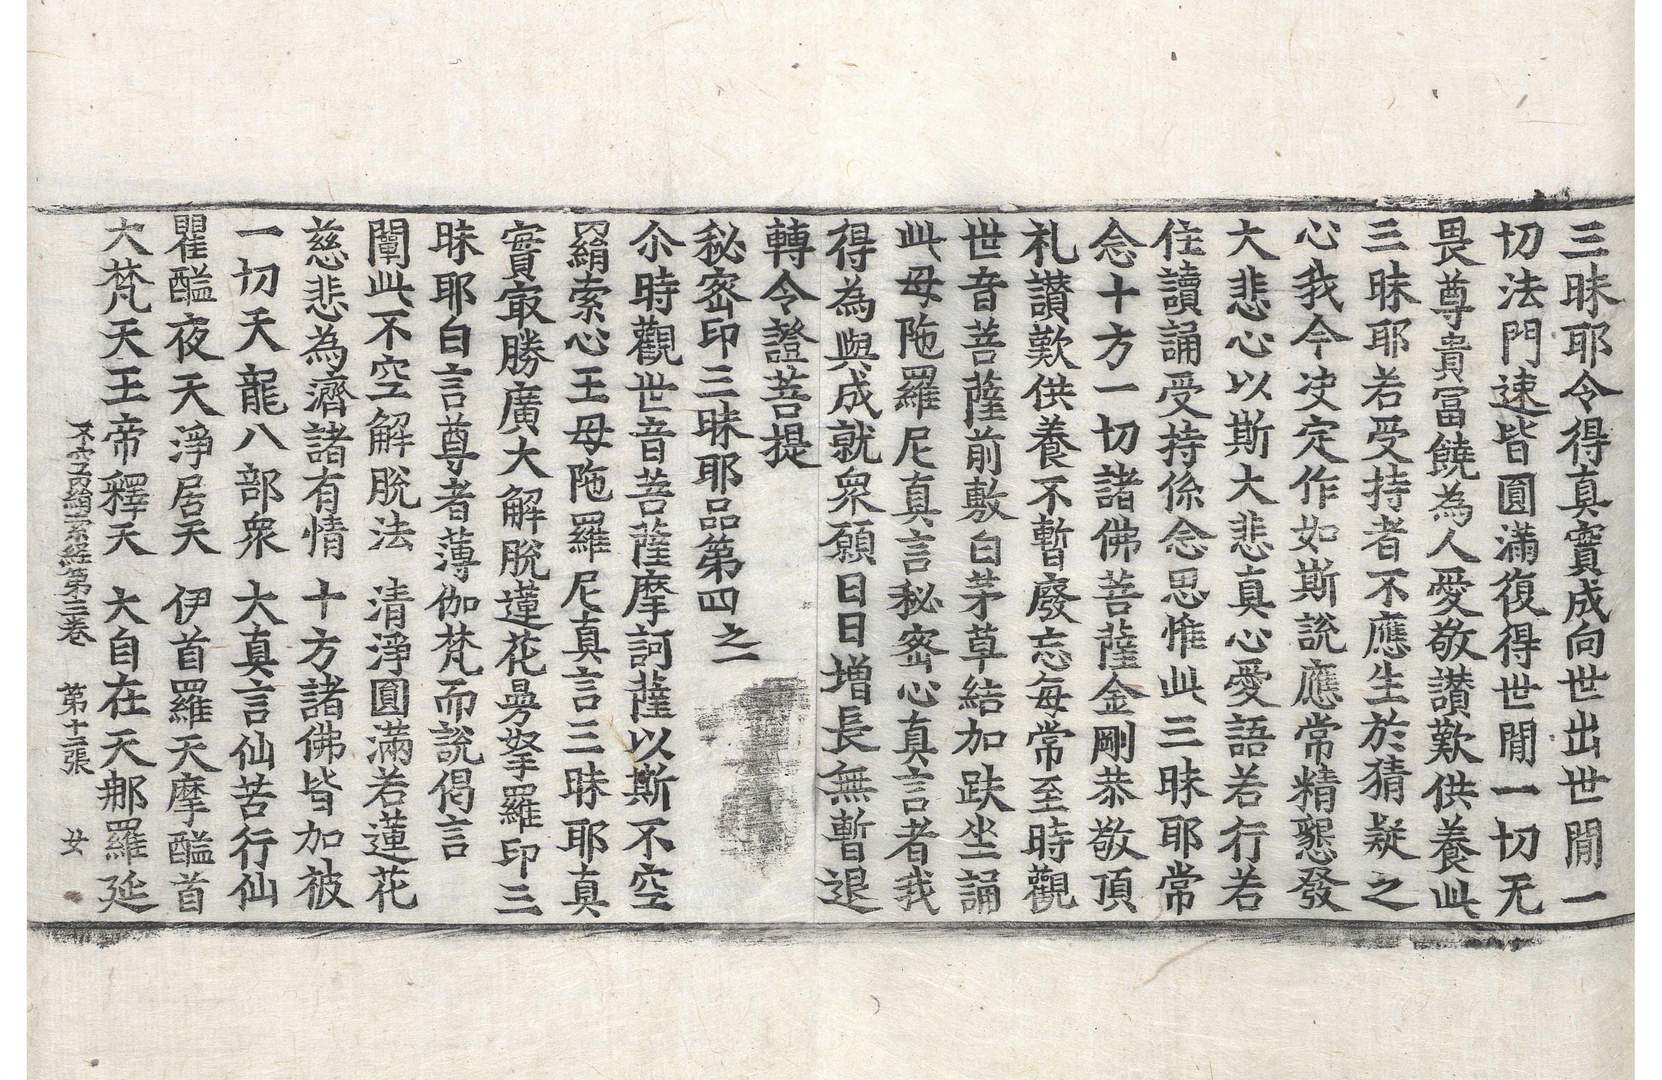 三昧耶令得真實成向世出世閒一
切法門速皆圓滿復得世閒一切无
畏尊貴富饒為人愛敬讃歎供養此
三昧耶若受持者不應生於猜疑之
心我今决定作如斯說應常精懇發
大悲心以斯大悲真心愛語若行若
住讀誦受持係念思惟此三昧耶常
念十方一切諸佛菩薩金剛恭敬頂
礼讃歎供養不暫廢忘每常至時觀
世音菩薩前敷白茅草結加趺坐誦
此母陁羅尼真言秘密心真言者我
得為與成就衆願日日增長無暫退
轉令證菩提
秘密印三昧耶品第四之一
尒時觀世音菩薩摩訶薩以斯不空
羂索心王母陁羅尼真言三昧耶真
實㝡勝廣大解脫蓮花曼拏羅印三
昧耶白言尊者薄伽梵而說偈言
闡此不空解脫法 清淨圓滿若蓮花
慈悲為濟諸有情 十方諸佛皆加被
一切天龍八部衆 大真言仙苦行仙
瞿醯夜天淨居天 伊首羅天摩醯首
大梵天王帝釋天 大自在天那羅延
不空羂索経第三卷 第十二張 女